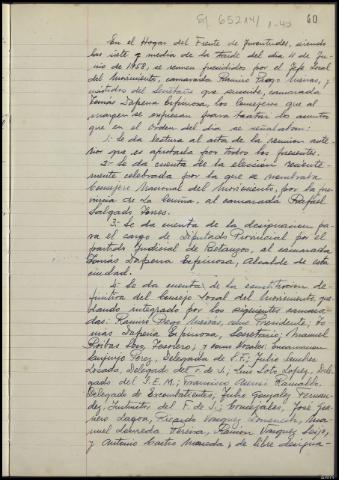 Sj 65214/1-43
60
En el Hogar del Frente de Juventudes, siendo
las siete y media de la tarde del día 11 de Ju-
nio de 1958, se reunen presididos por el Jefe Local
del Movimiento, camarada Ramiro Prego Meiras, y
asistidos del Secretario que suscribe, camarada
Tomás Dapena Espinosa, los Consejeros que al
margen se expresan para tratar los asuntos
que en el Orden del día se señalaban:
1: Se da lectura al acta de la reunion ante-
rior que es aprobada por todos los presentes.
2: Se da cuenta de la elección reciente-
mente celebrada por la que se nombraba
Consejero Nacional del Movimiento, por la pro-
vincia de La Coruña, al camarada Rafael
Salgado Torres.
3: Se da cuenta de la designación pa-
ra el cargo de Diputado Provincial por el
partido judicial de Betanzos, al camarada
Tomás Dapena Espinosa, Alcalde de esta
ciudad.
4: Se da cuenta de la constitucion de-
finitiva del Consejo Local del Movimiento, que-
dando integrado por los siguientes camara-
das: Ramiro Prego Meiras, como Presidente; To-
más Dapena Espinosa, Secretario; Manuel
Tesorero; y como Vocales: Encarnacion
Sanjurjo Pérez, Delegada de S.F.; Julio
Delegado del F. de J.; Luis Soto Lopez, Dele-
gado del S.E.M.; Francisco
Delegado de Excombatientes, Julio Gonzalez Fernan-
dez, Instructor del F. de J.; Concejales, José
Lagoa, Ricardo Vazquez
Pereira, Ramon Vazquez Seijo,
y Antonio Castro de libre designa-